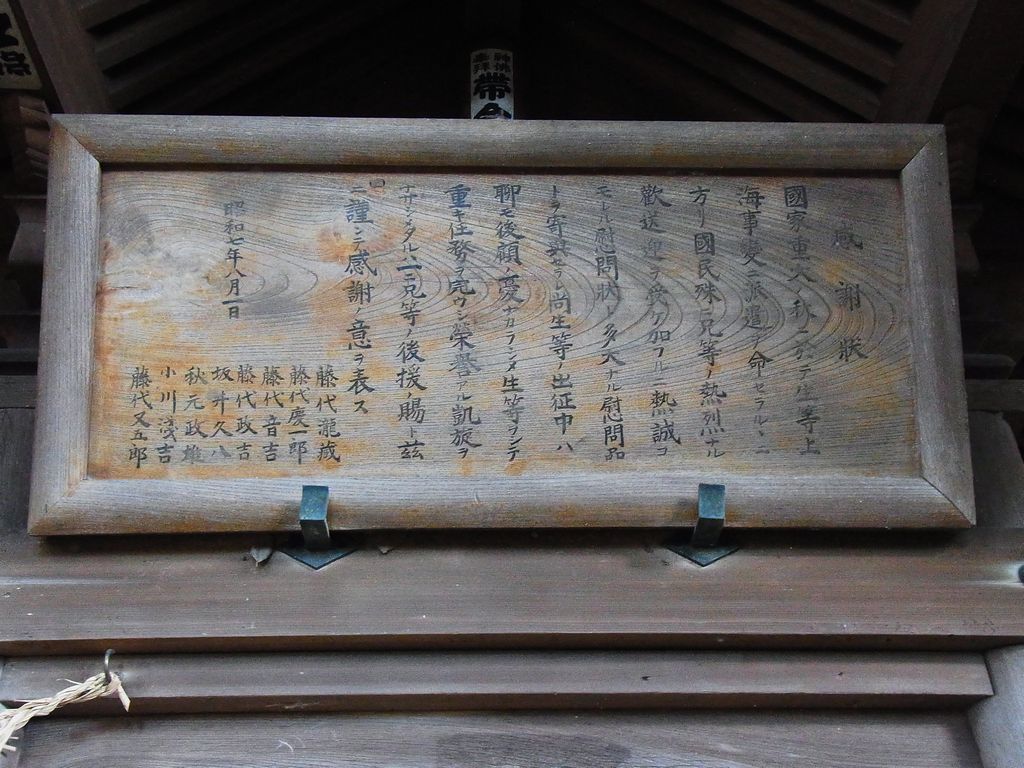 感謝狀
國家重大ノ秋ニ於テ生等上
海事變ニ派遣ヲ命セラルヽニ
方リ國民殊ニ兄等ノ熱烈ナル
歡送迎ヲ受ケ加フルニ熱誠コ
モレル慰問狀ト多大ナル慰問品
トヲ寄與セラレ尚生等ノ出征中ハ
聊モ後顧ノ憂ナカラシメ生等ヲシテ
重キ任務ヲ完ウシ榮譽アル凱旋ヲ
ナサシメタルハ一ニ兄等ノ後援ノ賜ト茲
ニ謹ンテ感謝ノ意ヲ表ス
昭和七年八月一日
藤代瀧藏
藤代慶一郎
藤代音吉
藤代政吉
坂井久八
秋元政雄
小川淺吉
藤代又五郎